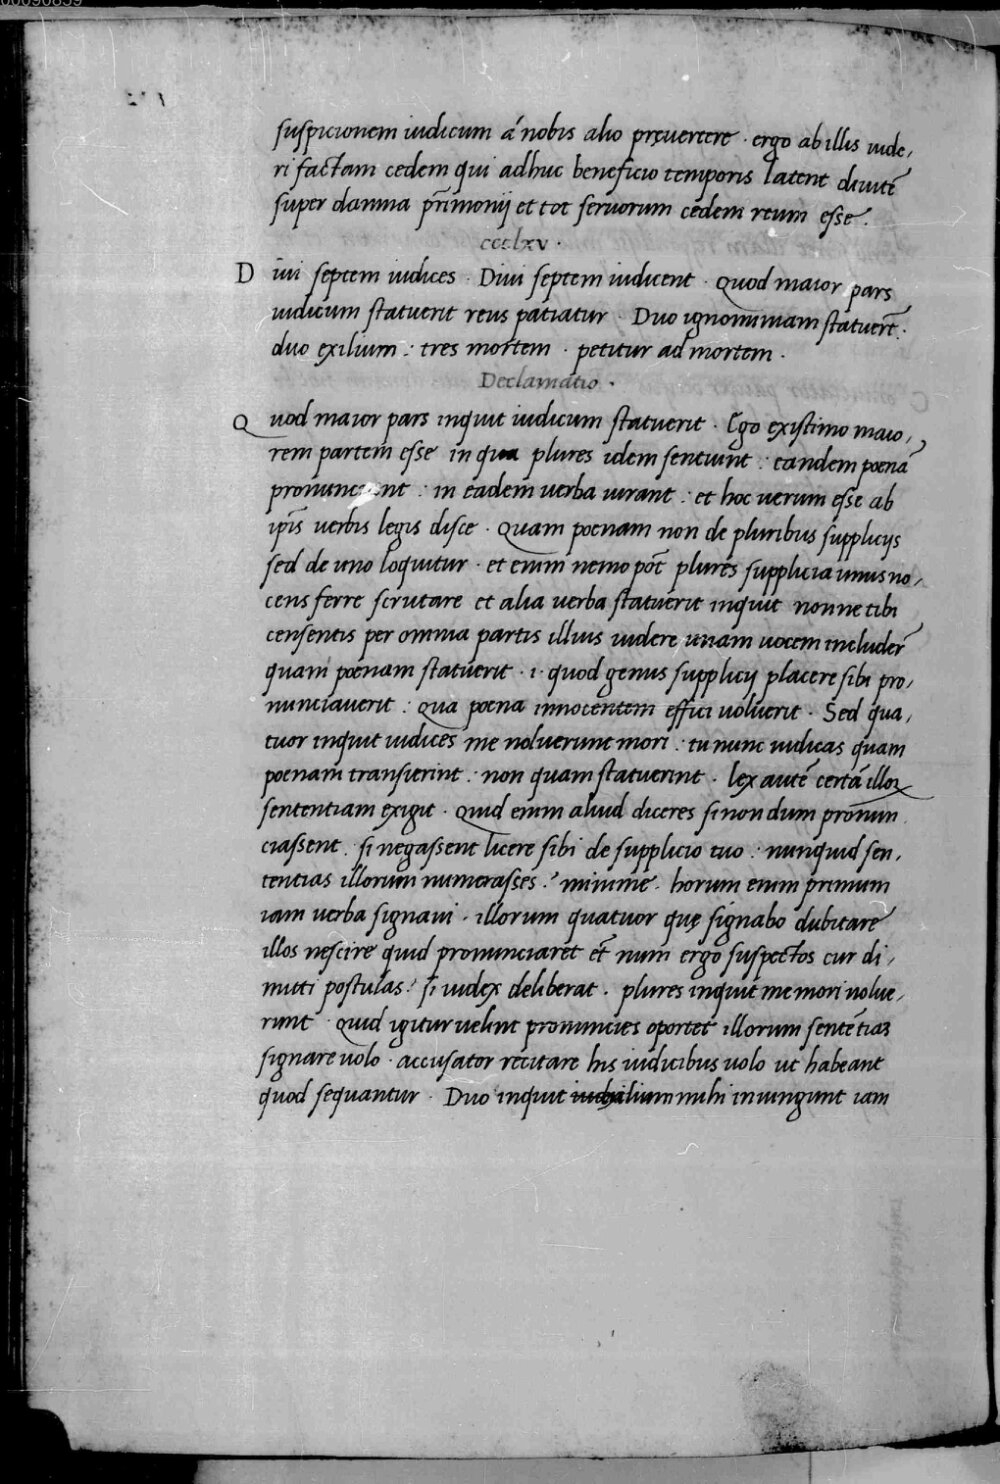 00090839
suspicionem iudicum á nobis alio pręvertere · ergo ab illis uide,
ri factam cedem qui adhuc beneficio temporis latent diuitē
super damna pr̄imonij et tot seruorum cedem reum esse .
ccclxv ·
D iui septem iudices · Diui septem iudicent · Quod maior pars
iudicum statuerit reus patiatur · Duo ignominiam statuert̄ ·
duo exilium : tres mortem · petitur ad mortem .
Declamatio ·
Q uod maior pars inquit iudicum statuerit · Ego existimo maio,
rem partem esse in qua plures idem sentiunt : eandem poenā
pronunciant : in eadem verba iurant : et hoc uerum esse ab
ip̄is verbis legis disce · Quam poenam non de pluribus supplicijs
sed de uno loquitur · et enim nemo pōt plures supplicia unus no,
cens ferre scrutare et alia verba statuerit inquit nonne tibi
censentis per omnia partis illius uidere unam uocem includer̄
quam poenam statuerit · i · quod genus supplicij placere sibi pro,
nunciauerit : qua poena innocentem effici uoluerit · Sed qua,
tuor inquit iudices me noluerunt mori : tu nunc iudicas quam
poenam transierint : non quam statuerint · lex autē certā illoꝝ
sententiam exigit · Quid enim aliud diceres si non dum pronun
ciassent . si negassent licere sibi de supplicio tuo : nunquid sen,
tentias illorum numerasses ? minime . horum enim primum
iam verba signaui · illorum quatuor quę signabo dubitare
illos nescire quid pronunciaret et̄ num ergo suspectos cur di,
mitti postulas ? si iudex deliberat · plures inquit me mori nolue,
runt · Quid igitur uelint pronuncies oportet illorum sentētias
signare uolo · accusator recitare his iudicibus uolo ut habeant
quod sequantur · Duo inquit mihi iniungunt iam